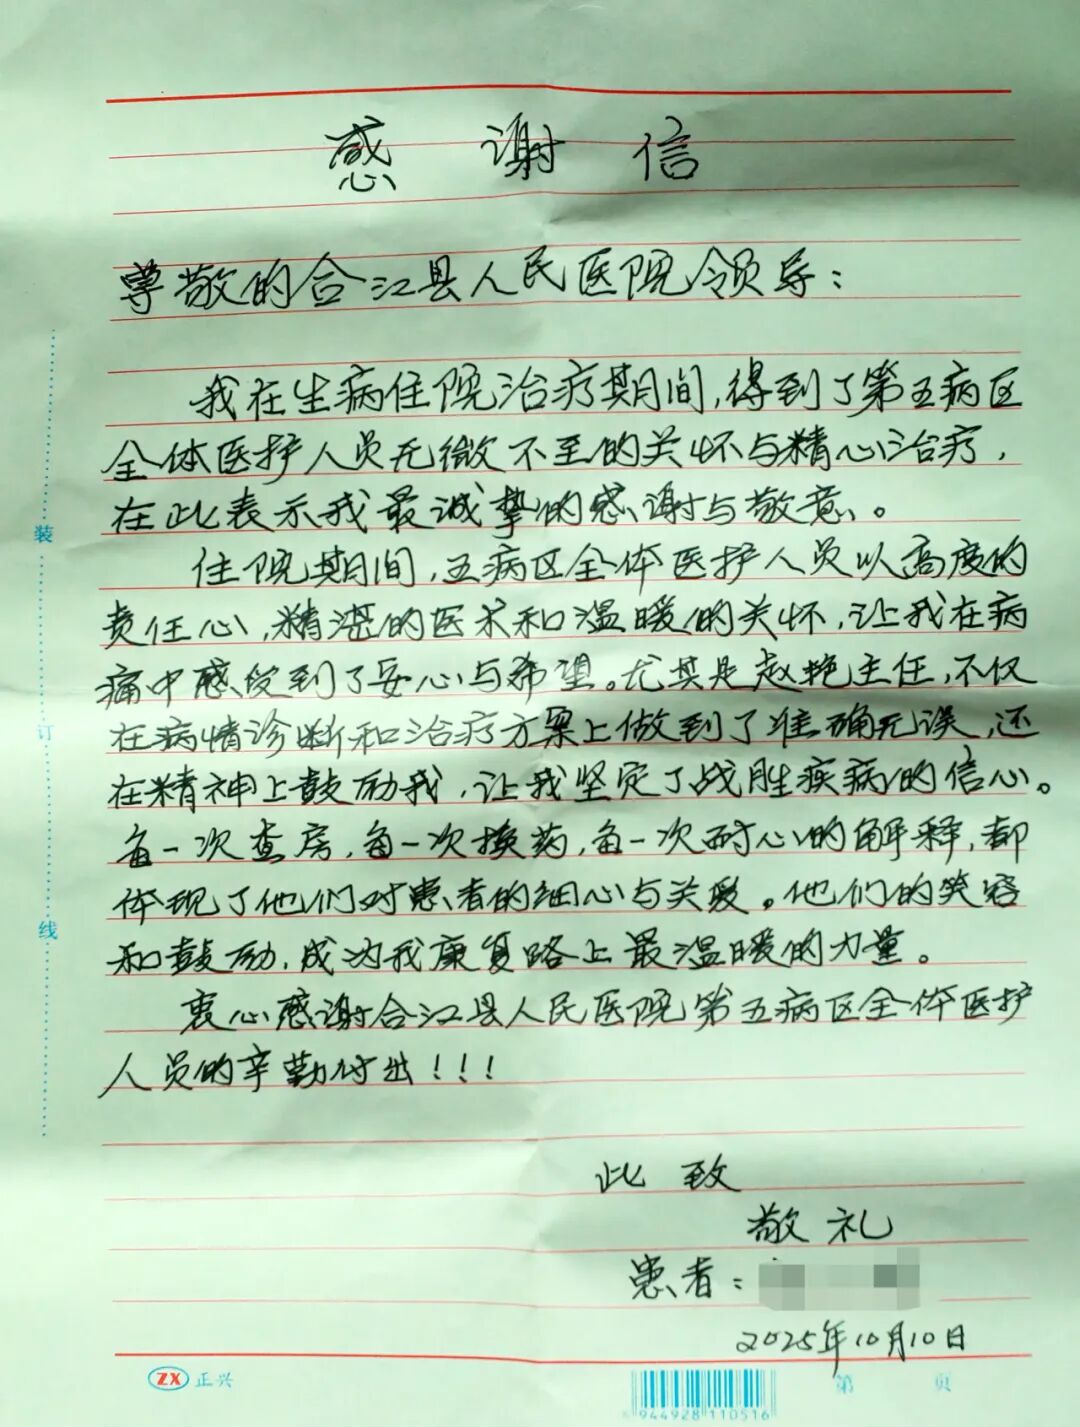 感谢信
尊敬的合江县人民医院领导：
我在生病住院治疗期间，得到了第五病区
全体医护人员无微不至的关怀与精心治疗，
在此表示我最诚挚的感谢与敬意。
住院期间，五病区全体医护人员以高度的
责任心，精湛的医术和温暖的关怀，让我在病
痛中感受到了安心与希望。尤其是赵艳主任，不仅
在病情诊断和治疗方案上做到了准确无误，还
在精神上鼓励我，让我坚定了战胜疾病的信心。
每一次查房，每一次换药，每一次耐心的解释，都
体现了他们对患者的细心与关爱。他们的笑容
和鼓励，成为我康复路上最温暖的力量。
衷心感谢合江县人民医院第五病区全体医护
人员的辛勤付出！！！
此致
敬礼
患者：
2025年10月10日
装
订
线
ZX 正兴
944928 110516
第 页